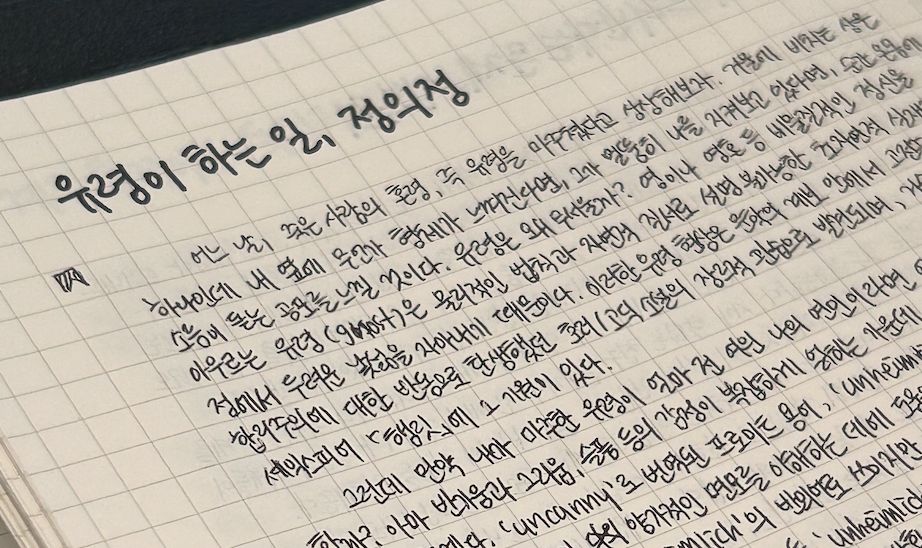 유령이 하는 일, 정의정
어느 날, 죽은 사람의 혼령, 즉 유령을 마주쳤다고 상상해보자. 거울에 비치는 상은
하나인데 내 옆에 무언가 형체가 느껴진다면, 그가 멀뚱히 나를 지켜보고 있다면, 순간
소름이 돋는 공포를 느낄 것이다. 유령은 왜 무서운가? 영이나 영혼 등 비물질적인 정신을
아우르는 유령(ghost)은 물리적인 법칙과 자연적 질서로 설명 불가능한 초자연적
점에서 두려운 낯섦을 자아내기 때문이다. 이러한 유령 형상은 앞에서
합리주의에 대한 반동으로 탄생했던 호러(고딕) 장르적 변모되며,
셰익스피어 『햄릿』에 그 기원이 있다.
그런데 만약 내가 마주한 유령이 얼마 전 여읜 나의 연인이라면
아마 반가움과 그리움, 슬픔 등의 감정이 복잡하게 얽히는 가운데
'uncanny'로 번역된 프로이트 용어, 'unheimlich
양가적인 면모를 이해하는 데에
의 반의어로
'unheimlich